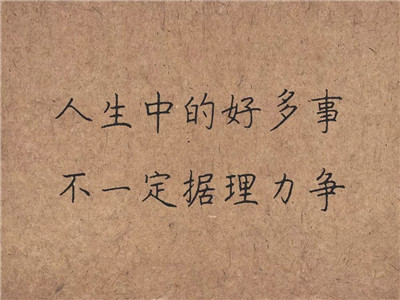 人生中的好多事
不一定据理力争